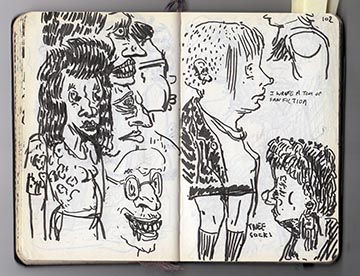 102
I WROTE A TON OF
FAN FICTION
KNEE
SOCKS